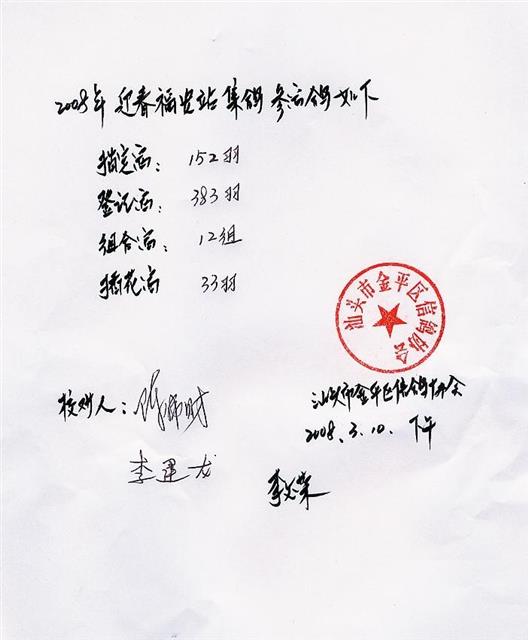 2008年 迎春福安站集鸽参赛鸽如下
指定赛： 152羽
登记赛： 383羽
组合赛： 12组
插花赛 33羽
汕头市金平区信鸽协会
汕头市金平区信鸽协会
2008.3.10. 下午
校对人：
李 龙
李 荣